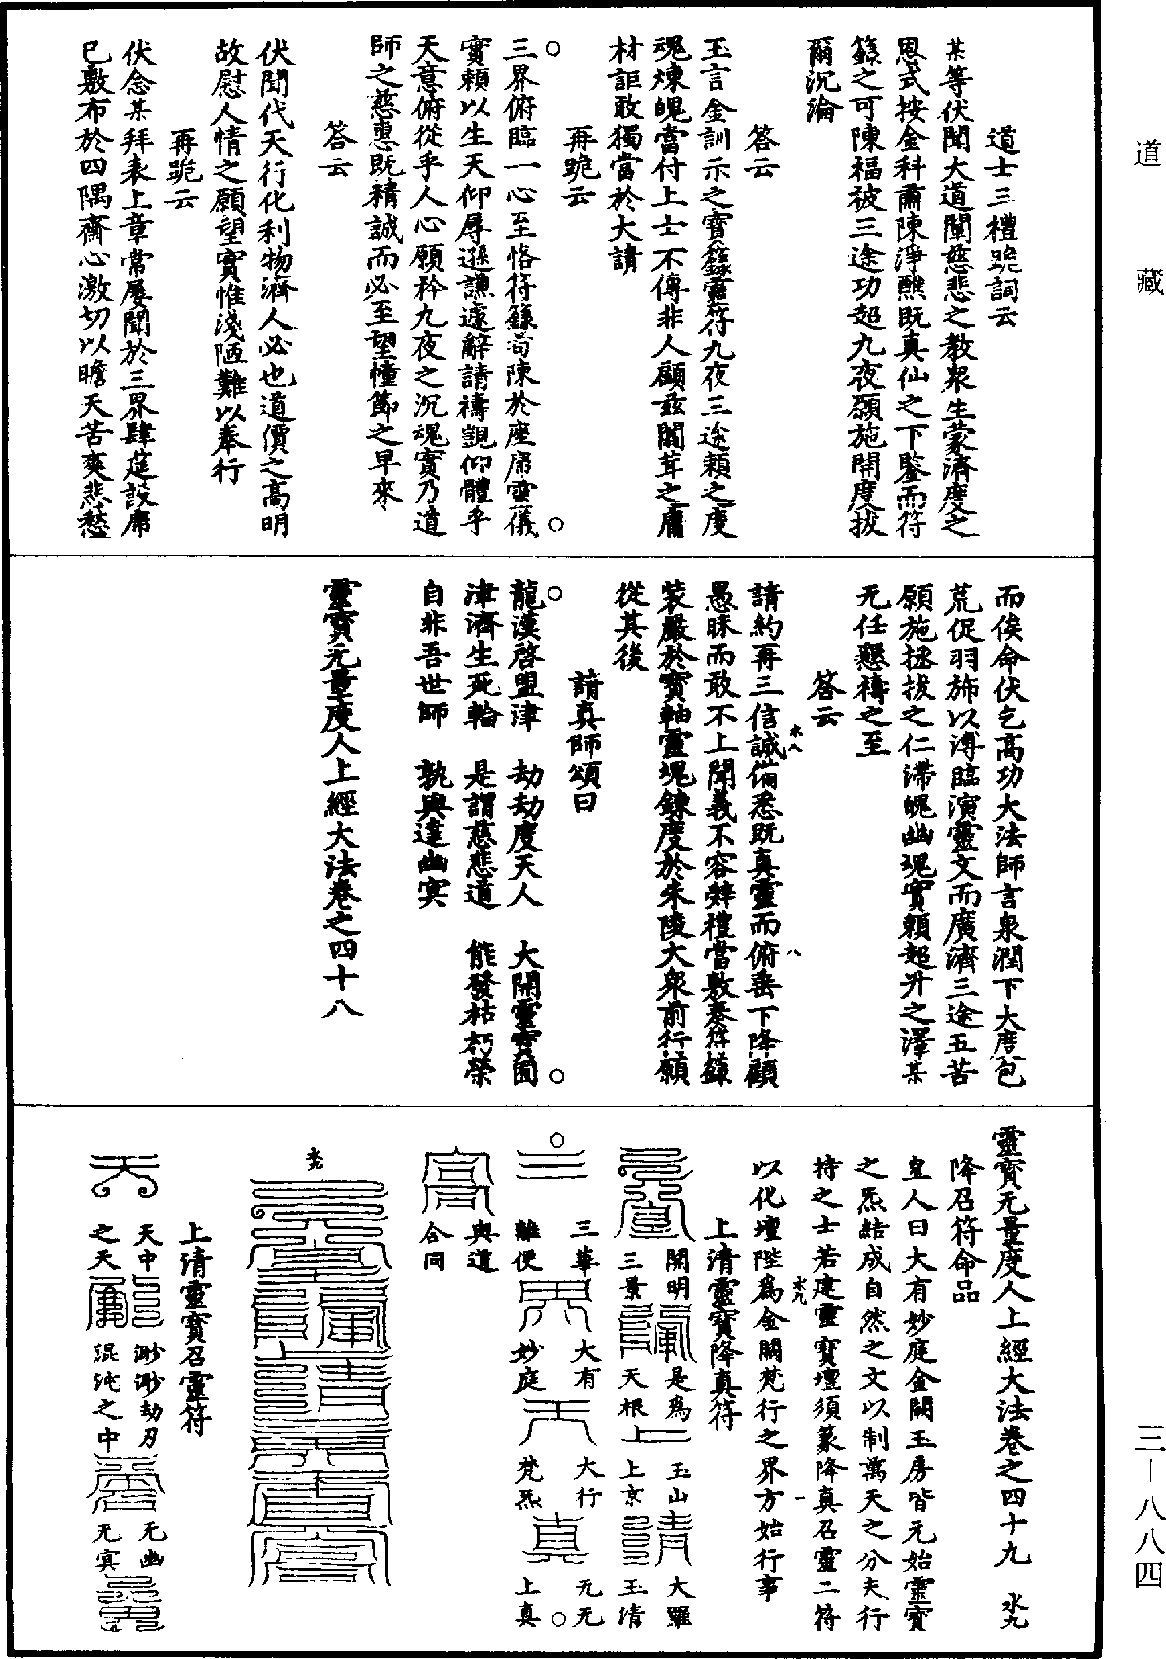 道藏
三—八八四
道士三禮跪詞云
某等伏聞大道闡慈悲之教衆生蒙濟度之
恩式按金科肅陳淨醮既真仙之下鑒而符
籙之可陳福被三途功超九夜願施開度拔
爾沉淪
答云
玉言金訓示之寶籙靈符九夜三途賴之度
魂煉魄當付上士不傳非人顧茲闒茸之庸
材詎敢獨當於大請
再跪云
三界俯臨一心至恪符籙苟陳於座席靈儀
實賴以生天仰辱遜謙遽辭請禱覬仰體乎
天意俯從乎人心願矜九夜之沉魂實乃道
師之慈惠既精誠而必至望幢節之早來
答云
伏聞代天行化利物濟人必也道價之高明
故慰人情之願望實惟淺陋難以奉行
再跪云
伏念某拜表上章常屢聞於三界肆筵設席
已敷布於四隅齋心激切以瞻天苦爽悲愁
而俟命伏乞高功大法師言泉潤下大度包
荒促羽斾以溥臨演靈文而廣濟三途五苦
願施拯拔之仁滯魄幽魂實賴超升之澤某
无任懇禱之至
答云
請約再三信誠備悉既真靈而俯垂下降顧
愚昧而敢不上聞義不容辭禮當敷奏符籙
裝嚴於寶軸靈魂鍊度於朱陵大衆前行願
從其後
請真師頌曰
龍漢啓盟津 劫劫度天人 大開靈寶圖
津濟生死輪 是謂慈悲道 能發枯朽榮
自非吾世師 孰與達幽冥
靈寶无量度人上經大法卷之四十八
靈寶无量度人上經大法卷之四十九 水九
降召符命品
皇人曰大有妙庭金闕玉房皆元始靈寶
之炁結成自然之文以制萬天之分夫行
持之士若建靈寶壇須篆降真召靈二符
以化壇陛爲金闕梵行之界方始行事
上清靈寶降真符
開明三景 是爲天根 玉山上京 大羅玉清
三華離便 大有妙庭 大行梵炁 元元上真
與道合同
上清靈寶召靈符
天中之天 渺渺劫刃 混沌之中 无幽无冥